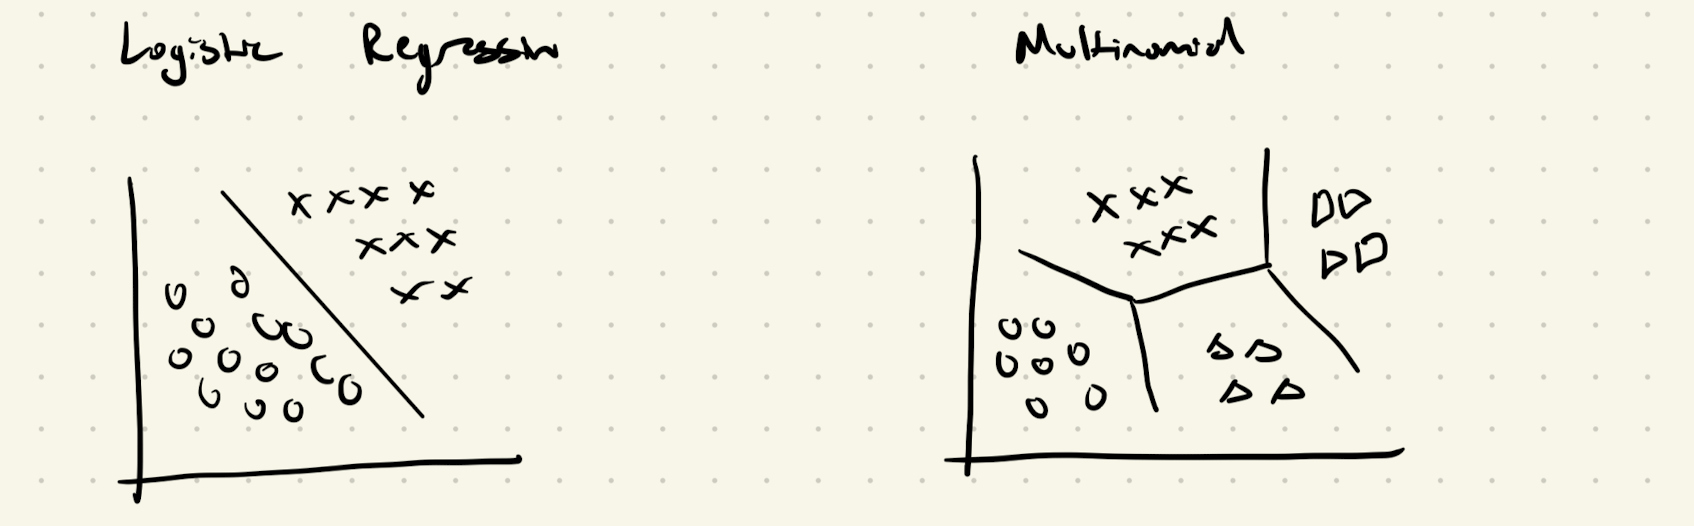 Logistic Regression
Multinomial